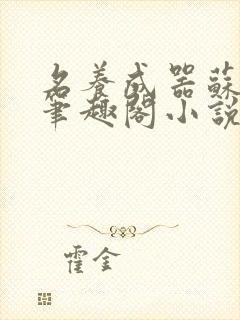 名養成器蘇
筆趣閣小說
霍金